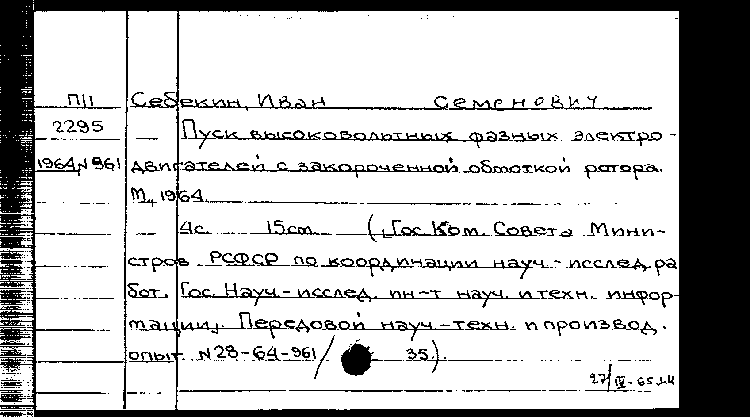 П/I Себекин, Иван Семенович
2295 — Пуск высоковольтных фазных электро-
1964, N 961 двигателей с закороченной обмоткой ротора.
М., 1964.
4с. 15см. (Гос. Ком. Совета Мини-
стров РСФСР по координации науч.-исслед. ра
бот. Гос. Науч.-исслед. ин-т науч. и техн. инфор-
мации. Передовой науч.-техн. и производ.
опыт. N 28-64-961/ 35).
27/IV-65